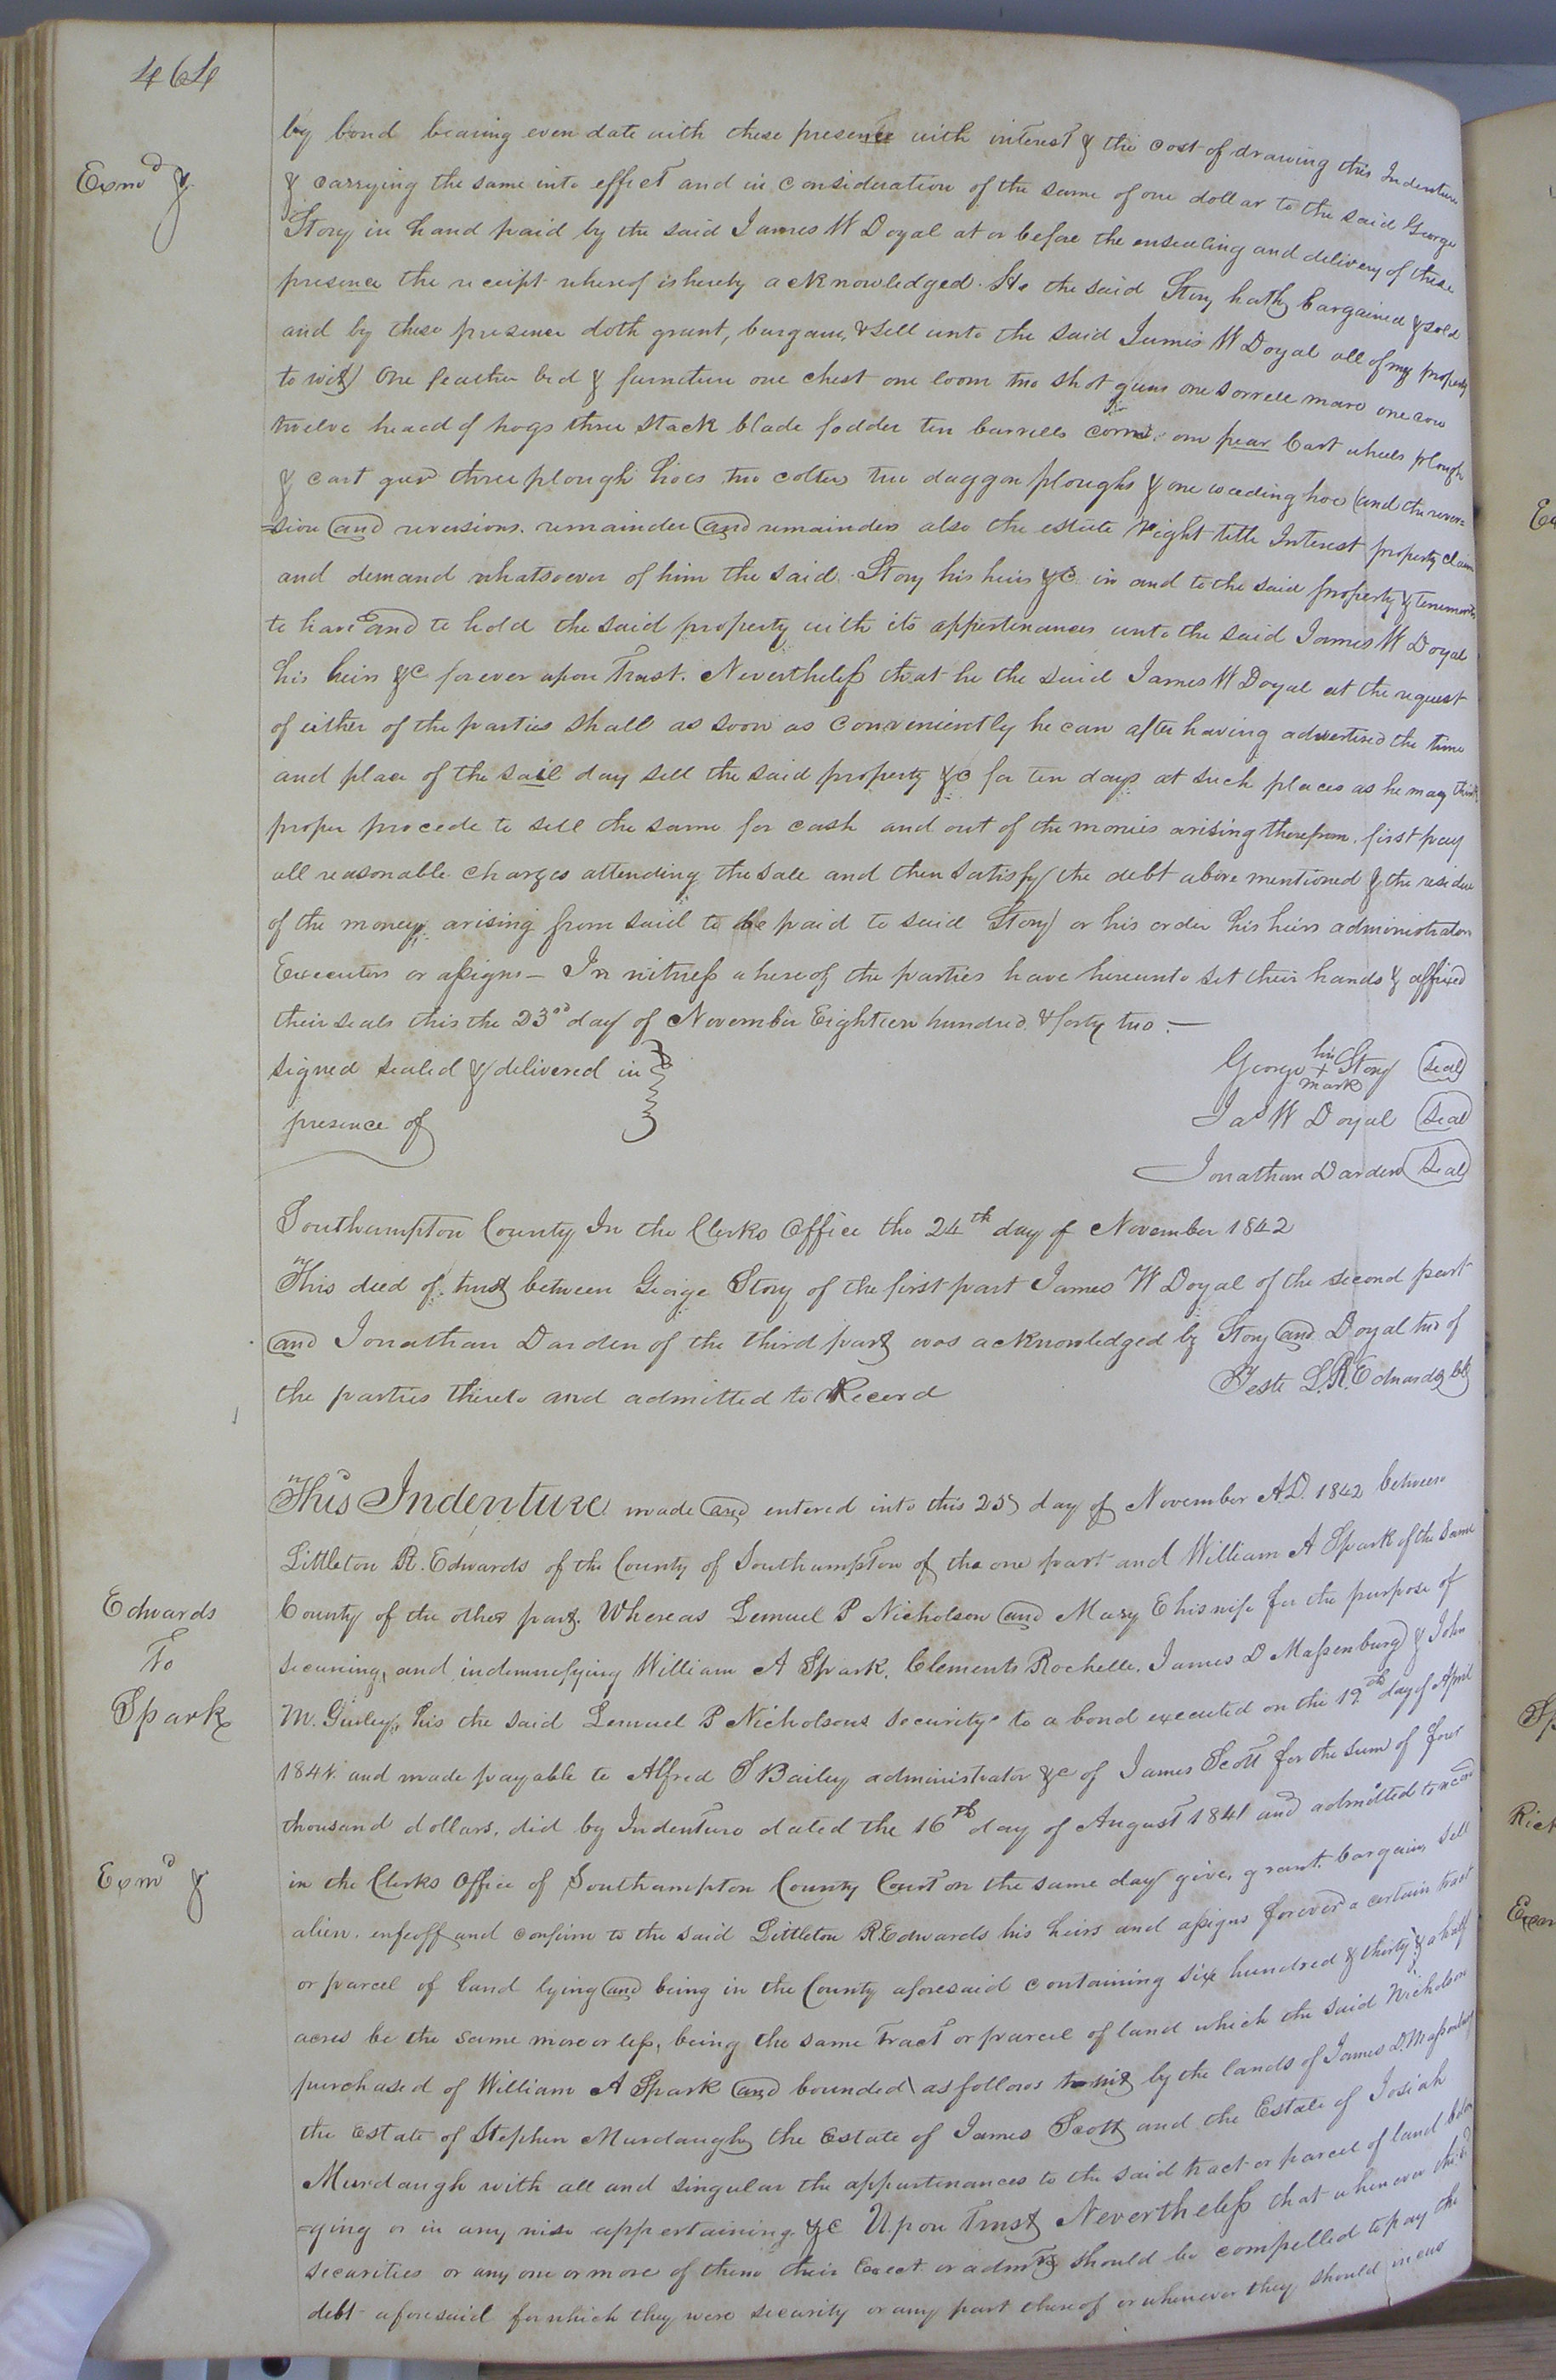 464
by bond bearing even date with these presence with interest & the cost of drawing this Indenture
Exmd &
& carrying the same into effect and in consideration of the same of one dollar to the said George
Story in hand paid by the said James W Doyal at or before the ensealing and delivery of these
presence the receipt whereof is hereby acknowledged. He the said Story hath bargained & sold
and by these presence doth grant, bargain, & sell unto the said James W Doyal all of my property
to wit) One feather bed & furniture one chest one loom two shot guns one sorrele mare one cow
twelve heaed of hogs three stack blade fodder ten barrells corn one pear Cart wheels plough
& cart gear three plough hoes two colters two daggon ploughs & one weeding hoe (and the rever=
=sion and reversions. remainder and remainders also the estate Right title Interest property claim
and demand whatsoever of him the said Story his heirs &c in and to the said property & tenements
to have and to hold the said property with its appertinances unto the said James W Doyal
his heirs &c forever upon Trust. Nevertheless that he the said James W Doyal at the request
of either of the parties shall as soon as conveniently he can after having advertised the time
and place of the sail day sell the said property &c for ten days at such places as he may think
proper procede to sell the same for cash and out of the monies arising therefrom. first pay
all reasonable charges attending the sale and then satisfy the debt above mentioned & the residue
of the money arising from said to be paid to said Story or his order his heirs administrators
Executors or assigns — In witness whereof the parties have hereunto set their hands & affixed
their seals this the 23rd day of November Eighteen hundred & forty two. —
signed sealed & delivered in
presence of
George his + mark Story Seal
Jas W Doyal Seal
Jonathan Darden Seal
Southampton County In the Clerks Office the 24th day of November 1842
This deed of trust between George Story of the first part James W Doyal of the second part
and Jonathan Darden of the third part was acknowledged by Story and Doyal two of
the parties thereto and admitted to Record
Teste L. R. Edwards clk
This Indenture made and entered into this 25 day of November A.D. 1842 between
Littleton R. Edwards of the County of Southampton of the one part and William A Spark of the same
Edwards
To
Spark
County of the other part. Whereas Lemuel P Nicholson and Mary E his wife for the purpose of
securing, and indemnifying William A Spark, Clements Rochelle, James D Massenburg & John
M. Gurley, his the said Lemuel P Nicholsons security to a bond executed on the 19th day of April
184 and made payable to Alfred S Bailey administrator &c of James Scott for the sum of four
thousand dollars, did by Indenture dated the 16th day of August 1841 and admitted to record
Exmd &
in the Clerks Office of Southampton County Court on the same day give, grant, bargain, sell
alien. enfeoff and confirm to the said Littleton R Edwards his heirs and assigns forever a certain tract
or parcel of land lying and being in the County aforesaid containing six hundred & thirty & a half
acres be the same more or less, being the same tract or parcel of land which the said Nicholson
purchased of William A Spark and bounded as follows to wit by the lands of James D. Massenburg
the Estate of Stephen Murdaugh, the Estate of James Scott and the Estate of Josiah
Murdaugh with all and singular the appurtenances to the said tract or parcel of land belon
=ging or in any wise appertaining &c Upon Trust Nevertheless that whenever the sd
securities or any one or more of them their Exect or admrs should be compelled to pay the
debt aforesaid for which they were security or any part thereof or whenever they should incur